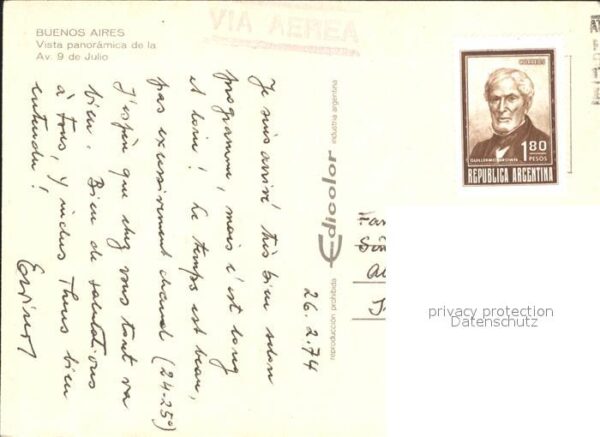 BUENOS AIRES
Vista panorámica de la
Av. 9 de Julio
VIA AEREA
26.2.74
Je suis arrivé très bien selon
programme, mais c'est long
et loin! Le temps est beau,
pas excessivement chaud (24-25°)
J'espère que chez vous tout va
bien. Bien de salutations
à tous, y inclus Thuns bien
entendu!
Erwin
Edicolor
industria argentina
reproducción prohibida
CORREOS
GUILLERMO BROWN
1.80
PESOS
REPUBLICA ARGENTINA
privacy protection
Datenschutz